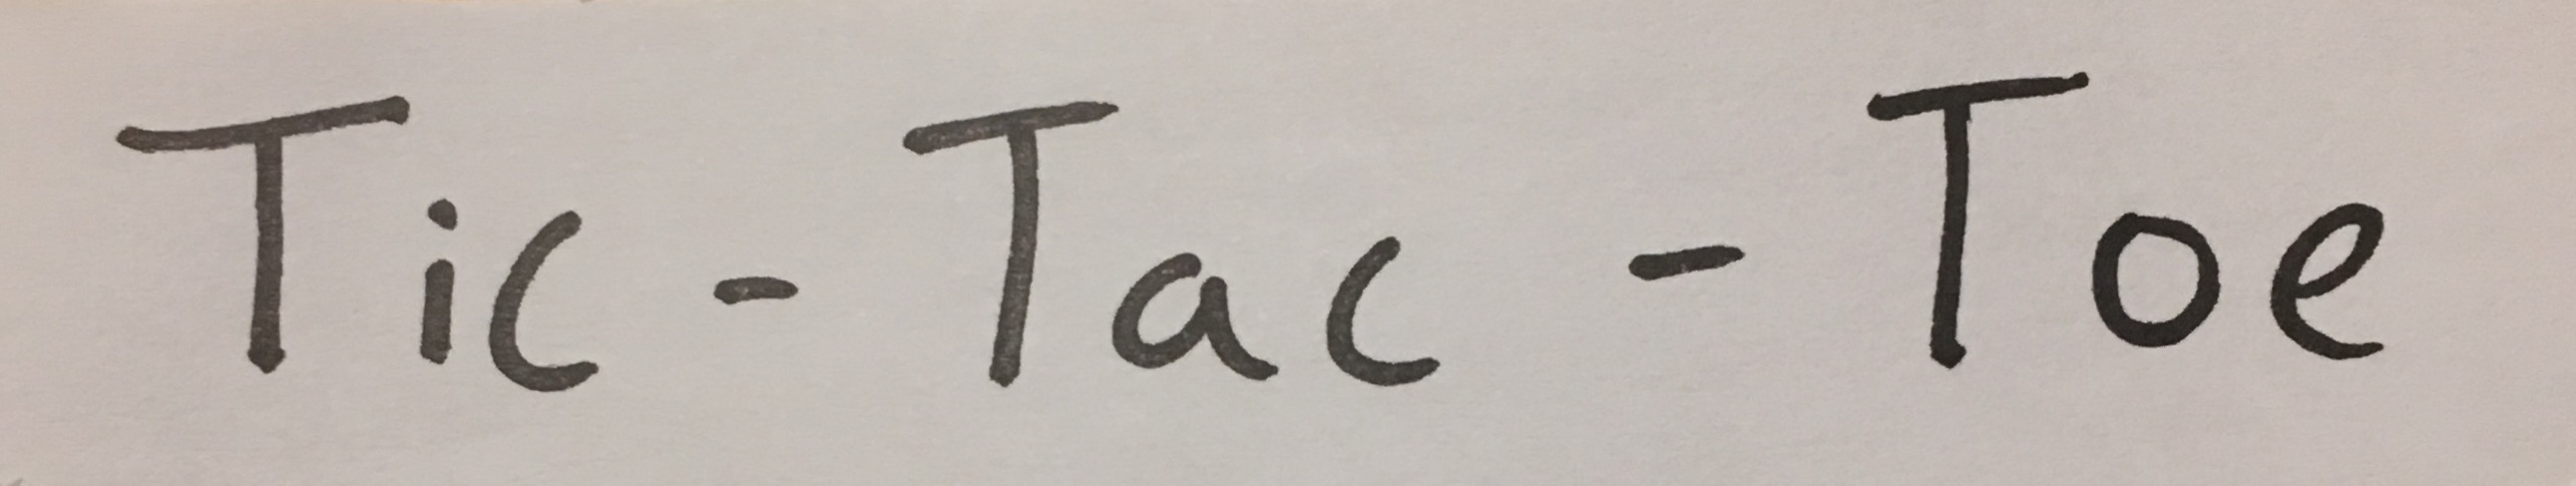 Tic - Tac - Toe